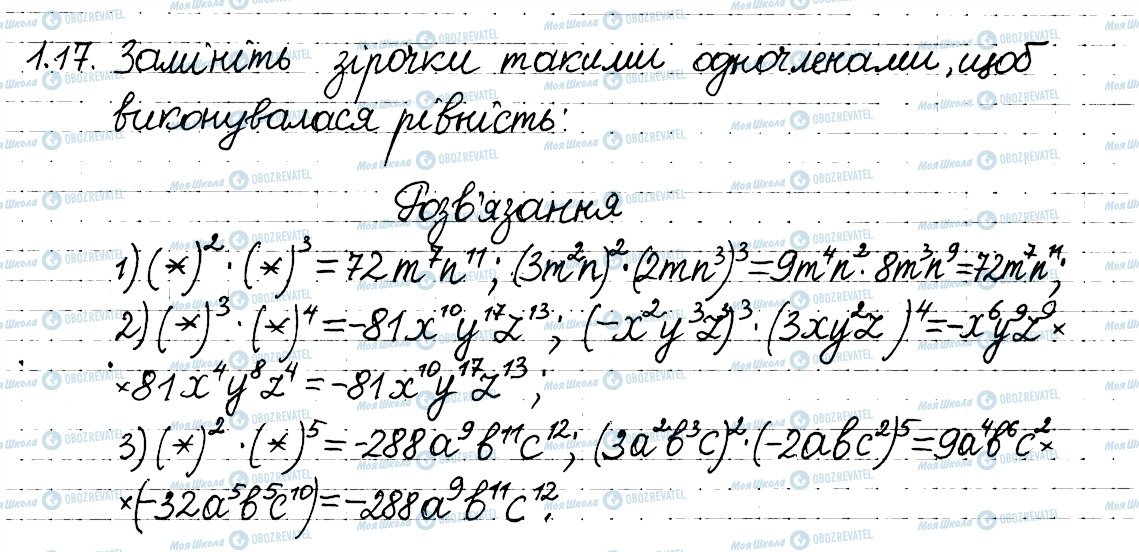 1.17. Замініть зірочки такими одночленами, щоб
виконувалася рівність:
Розв'язання
1) (*)² · (*)³ = 72m⁷n¹¹; (3m²n)² · (2mn³)³ = 9m⁴n² · 8m³n⁹ = 72m⁷n¹¹;
2) (*)³ · (*)⁴ = -81x¹⁰y¹⁷z¹³; (-x²y³z³)³ · (3xy²z)⁴ = -x⁶y⁹z⁹ ×
× 81x⁴y⁸z⁴ = -81x¹⁰y¹⁷z¹³;
3) (*)² · (*)⁵ = -288a⁹b¹¹c¹²; (3a²b³c)² · (-2abc²)⁵ = 9a⁴b⁶c² ×
× (-32a⁵b⁵c¹⁰) = -288a⁹b¹¹c¹².